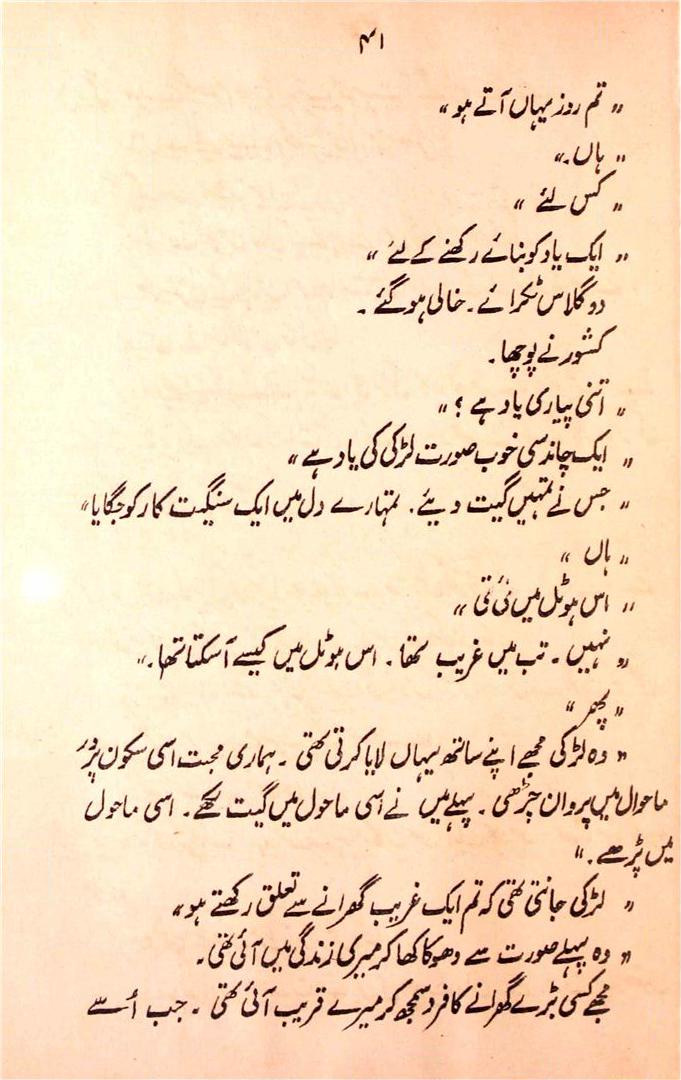 ۴۱
"تم روز یہاں آتے ہو"
"ہاں۔"
"کس لئے"
"ایک یاد کو بنائے رکھنے کے لئے"
دو گلاس ٹکرائے۔ خالی ہو گئے۔
کشور نے پوچھا۔
"اتنی پیاری یاد ہے؟"
"ایک چاند سی خوب صورت لڑکی کی یاد ہے"
"جس نے تمہیں گیت دیئے۔ تمہارے دل میں ایک سنگیت کار کو جگایا"
"ہاں"
"اس ہوٹل میں ئی تی"
"نہیں۔ تب میں غریب تھا۔ اس ہوٹل میں کیسے آ سکتا تھا۔"
"پھر"
"وہ لڑکی مجھے اپنے ساتھ یہاں لایا کرتی تھی۔ ہماری محبت اسی سکون پرور
ماحوال میں پروان چڑھی۔ پہلے میں نے اسی ماحول میں گیت لکھے۔ اسی ماحول
میں پڑھے۔"
"لڑکی جانتی تھی کہ تم ایک غریب گھرانے سے تعلق رکھتے ہو"
"وہ پہلے صورت سے دھوکا کھا کر میری زندگی میں آئی تھی۔
مجھے کسی بڑے گھرانے کا فرد سمجھ کر میرے قریب آئی تھی۔ جب اُسے